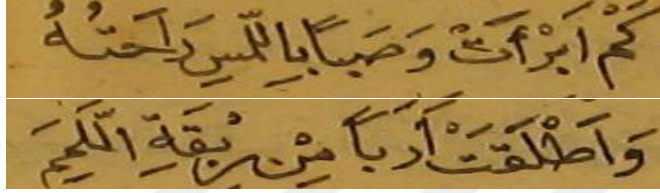 كَمْ اَبْرْأَتْ وَصَبًا بِاللَّمْسِ رَاحَتُهُ
وَاَطْلَقَتْ اَرَبًا مِنْ رِبْقَةِ اللَّمَمِ